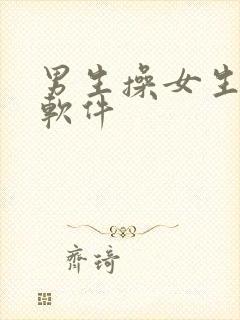 男生操女生
軟件
齊琦